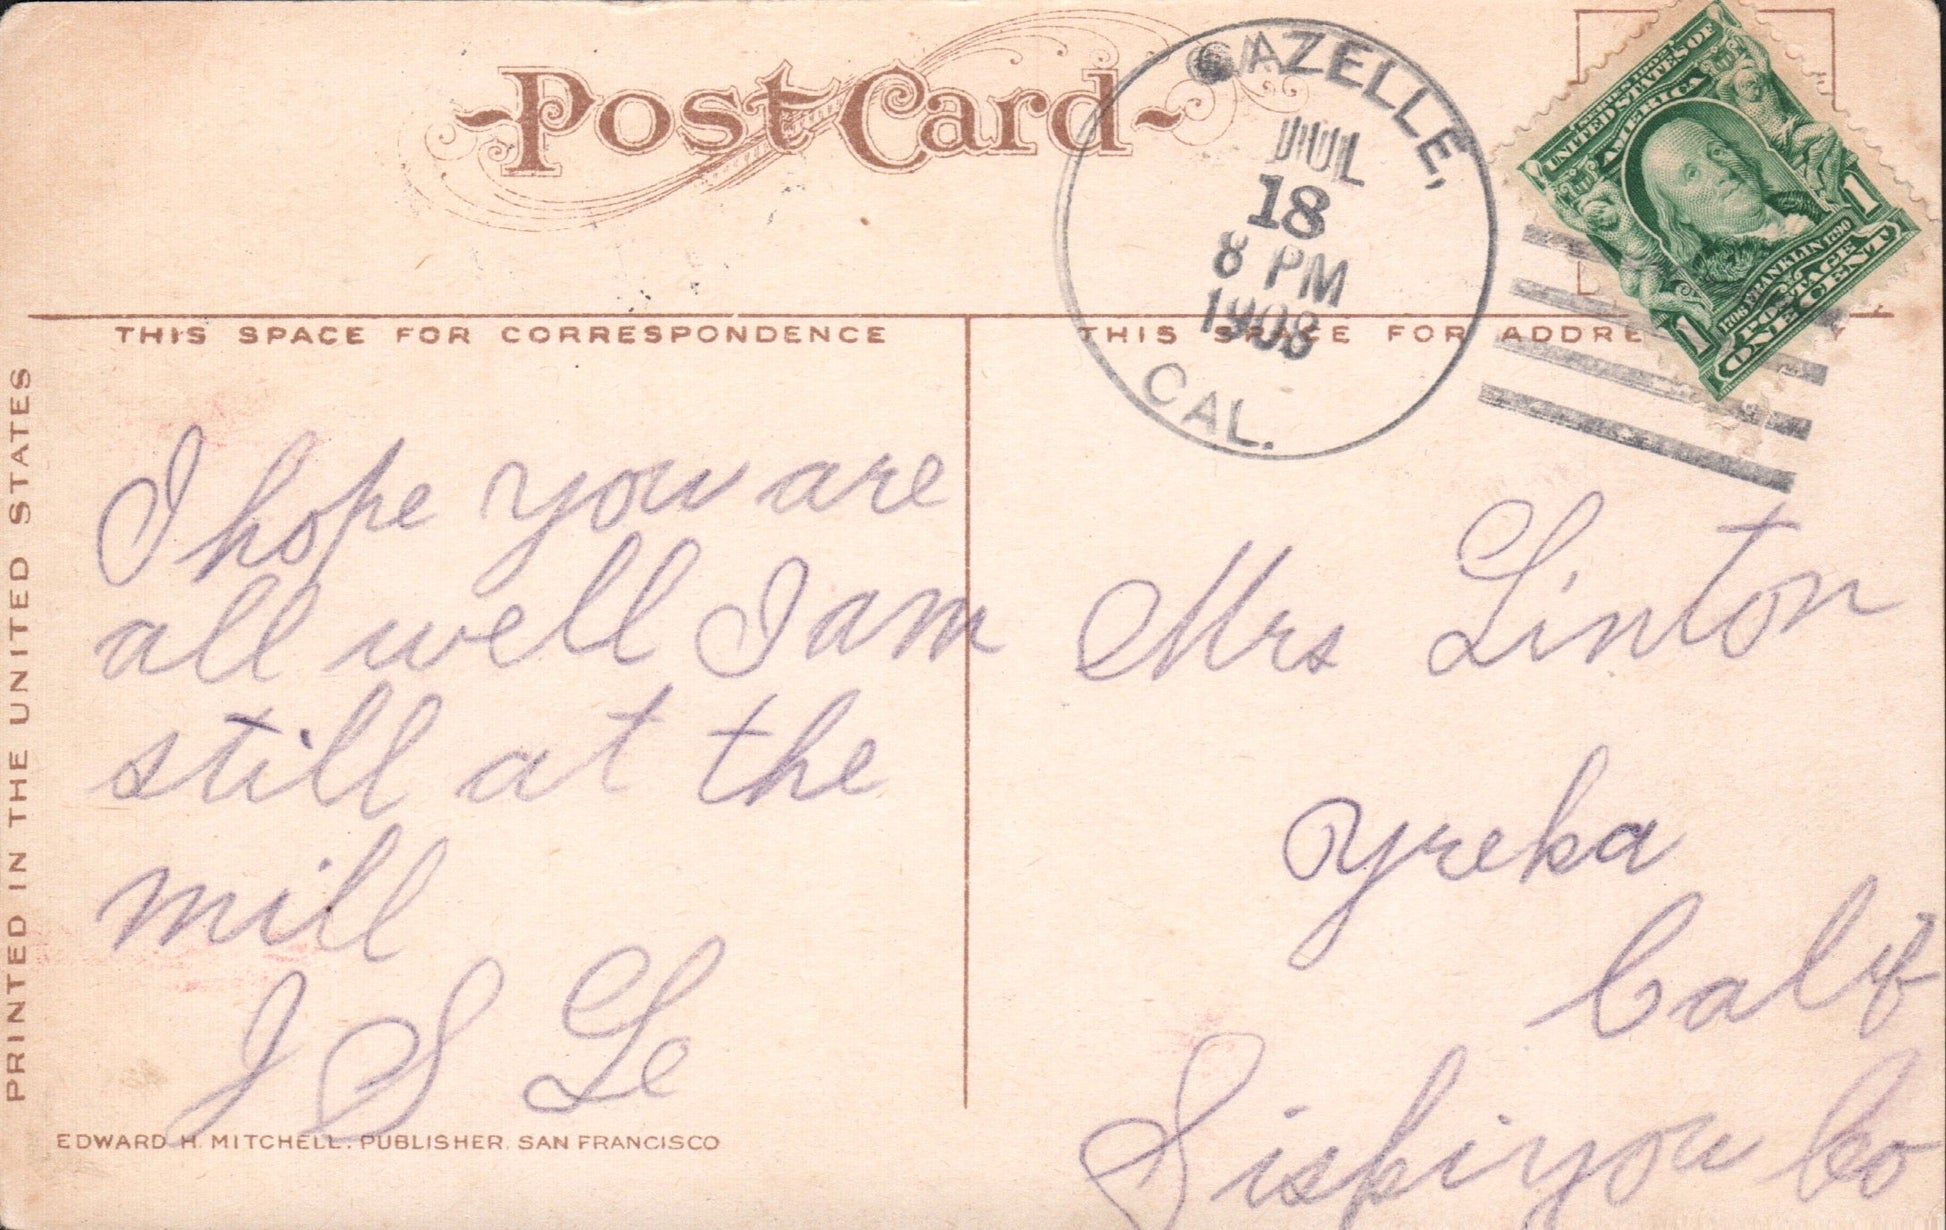 Post Card
GAZELLE,
JUL
18
8 PM
1908
CAL.
UNITED STATES OF
AMERICA
1706 FRANKLIN 1790
POSTAGE
1 ONE CENT 1
THIS SPACE FOR CORRESPONDENCE
THIS SPACE FOR
PRINTED IN THE UNITED STATES
I hope you are
all well I am
still at the
mill
J S Le
EDWARD H. MITCHELL, PUBLISHER, SAN FRANCISCO
Mrs Linton
Yreka
Calif
Siskiyou Co